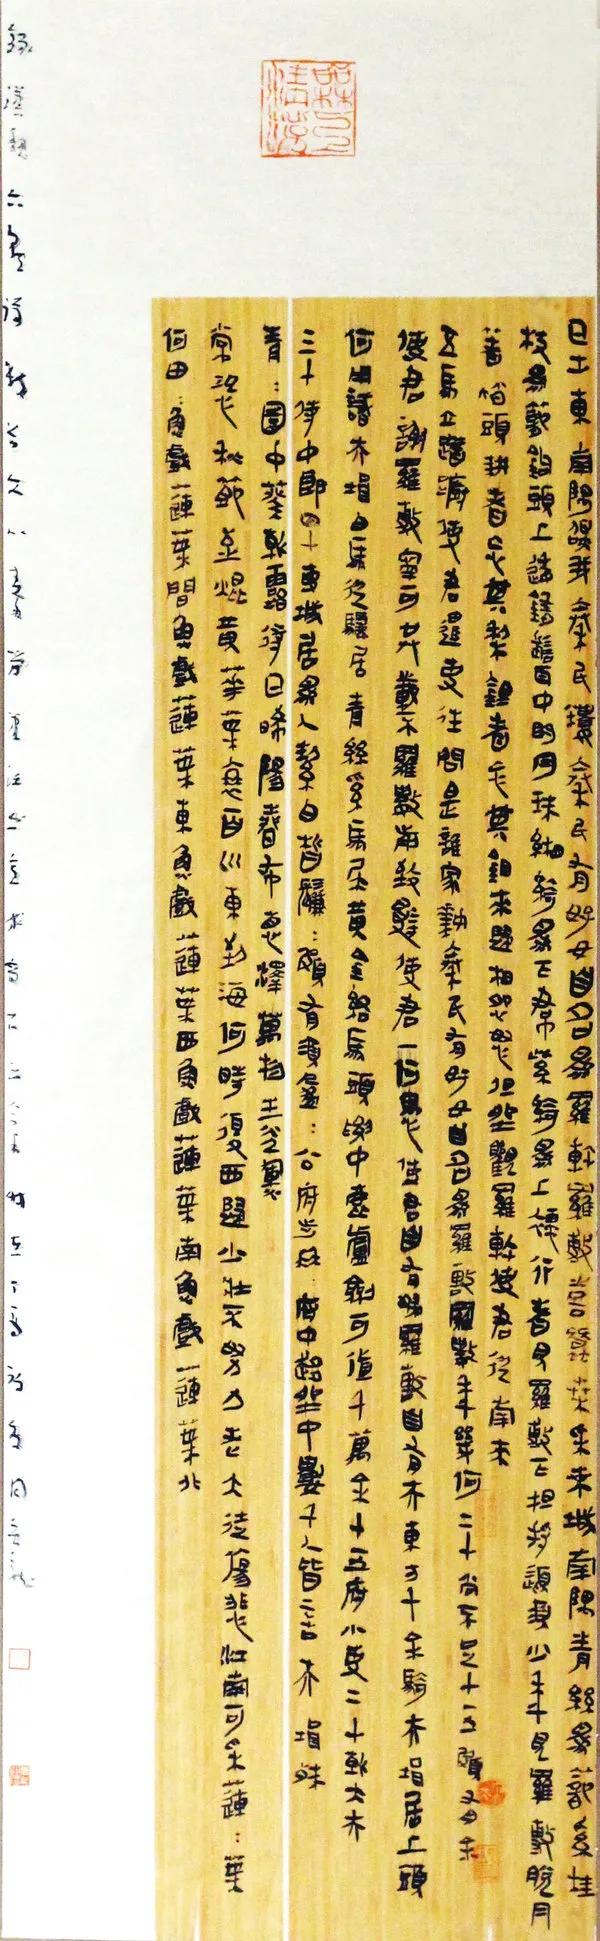 日出東南隅照我秦氏樓秦氏有好女自名為羅敷羅敷喜蠶桑采桑城南隅青絲為籠系桂
枝為籠鉤頭上倭墮髻耳中明月珠緗綺為下裙紫綺為上襦行者見羅敷下担捋髭須少年見羅敷脫
著帩頭耕者忘其犁鋤者忘其鋤來歸相怨怒但坐觀羅敷使君從南來
五馬立踟躕使君遣吏往問是誰家姝秦氏有好女自名為羅敷羅敷年幾何二十尚不足十五頗有余
使君謝羅敷寧可共載不羅敷前致辭使君一何愚使君自有婦羅敷自有夫東方千余騎夫婿居上頭
何用識夫婿白馬從驪居青絲系馬尾黃金絡馬頭腰中鹿盧劍可值千萬余十五府小吏二十朝大夫
三十侍中郎四十專城居為人潔白皙鬑:頗有須盈:公府步冉:府中趨坐中數千人皆言夫婿殊
青:園中葵朝露待日晞陽春布德澤萬物生光輝
常恐秋節至焜黃華葉衰百川東到海何時復西歸少壯不努力老大徒傷悲江南可采蓮:葉
何田:魚戲蓮葉間魚戲蓮葉東魚戲蓮葉西魚戲蓮葉南魚戲蓮葉北
錄漢魏六朝詩